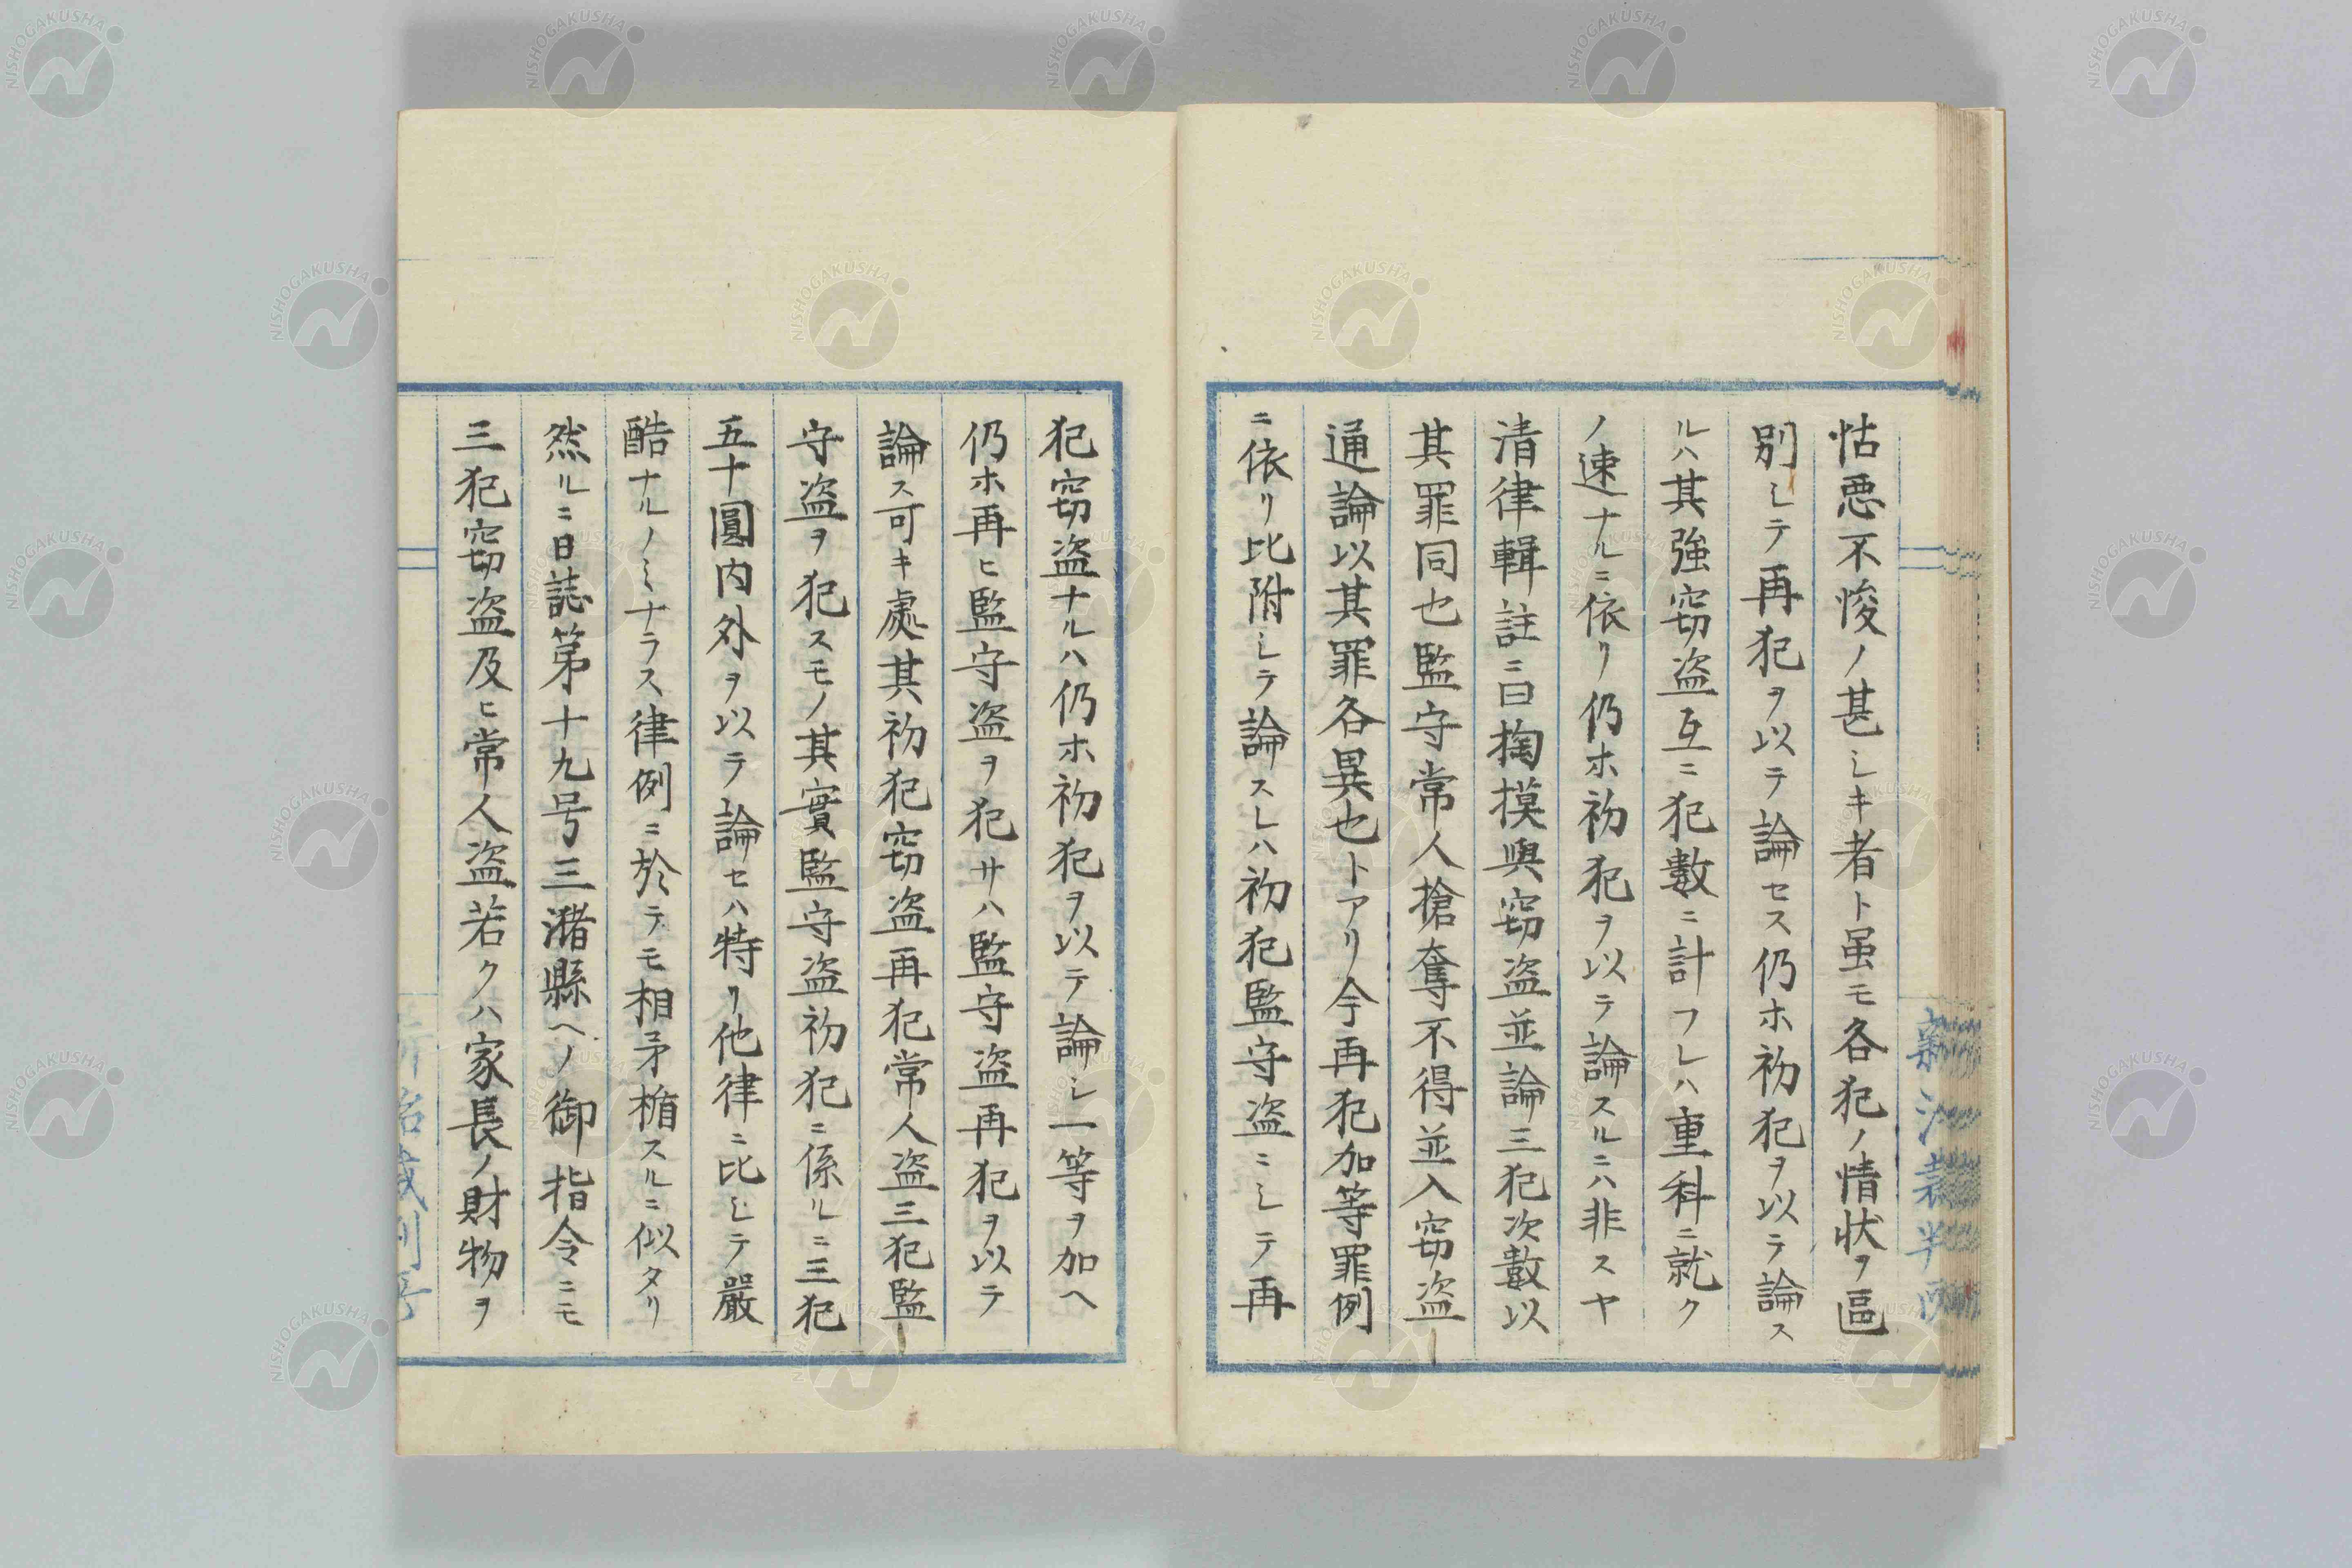 怙悪不悛ノ甚シキ者ト虽モ各犯ノ情状ヲ區
別シテ再犯ヲ以テ論セス仍ホ初犯ヲ以テ論ス
ルハ其強窃盗互ニ犯數ニ計フレハ重科ニ就ク
ノ速ナルニ依リ仍ホ初犯ヲ以テ論スルニハ非スヤ
清律輯註ニ曰掏摸與窃盗並論三犯次數以
其罪同也監守常人搶奪不得並入窃盗
通論以其罪各異也トアリ今再犯加等罪例
ニ依リ比附シテ論スレハ初犯監守盗ニシテ再
犯窃盗ナルハ仍ホ初犯ヲ以テ論シ一等ヲ加ヘ
仍ホ再ヒ監守盗ヲ犯サハ監守盗再犯ヲ以テ
論ス可キ處其初犯窃盗再犯常人盗三犯監
守盗ヲ犯スモノ其實監守盗初犯ニ係ルニ三犯
五十圓内外ヲ以テ論セハ特リ他律ニ比シテ嚴
酷ナルノミナラス律例ニ於テモ相矛楯スルニ似タリ
然ルニ日誌第十九号三潴縣ヘノ御指令ニモ
三犯窃盗及ヒ常人盗若クハ家長ノ財物ヲ
NISHOGAKUSHA